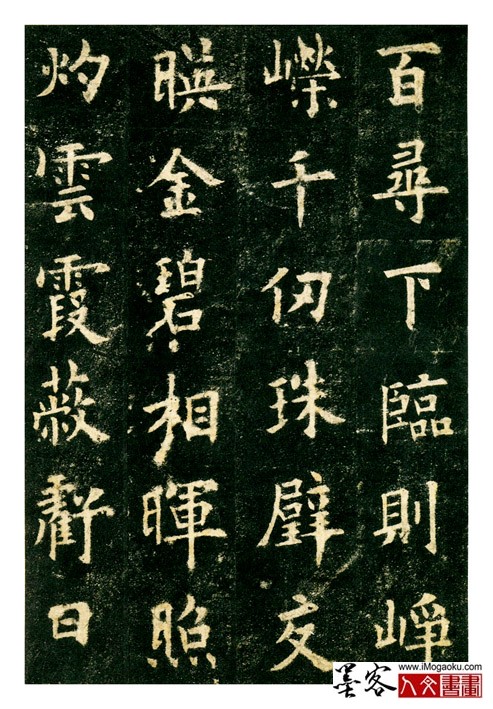 百尋下臨則崢
嶸千仞珠璧交
暎金碧相暉照
灼雲霞蔽虧日
墨客
www.iMogaoku.com
人文書畫